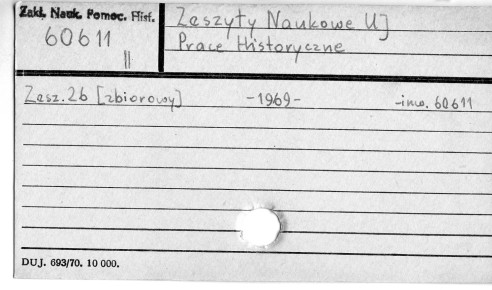 Zakł. Nauk. Pomoc. Hist.
60611
||
Zeszyty Naukowe UJ
Prace Historyczne
Zesz. 26 [zbiorowy] -1969- -inw. 60611
DUJ. 693/70. 10 000.